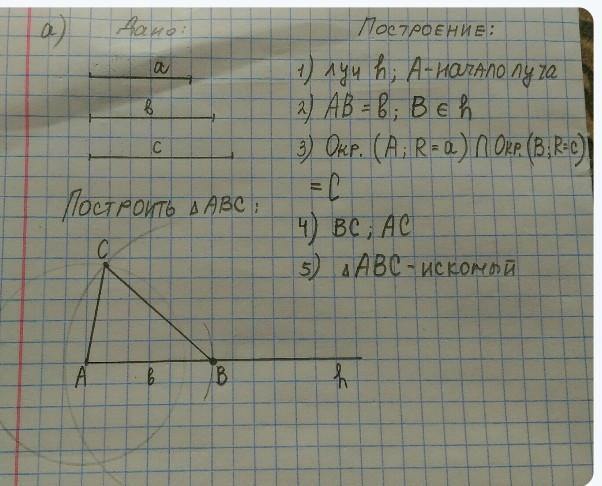 а) Дано:
a
в
c
Построить △ABC:
C
A в B h
Построение:
1) луч h; A-начало луча
2) AB = в; B ∈ h
3) Окр. (A; R = a) ∩ Окр. (B; R=c)
= C
4) BC; AC
5) △ABC - искомый